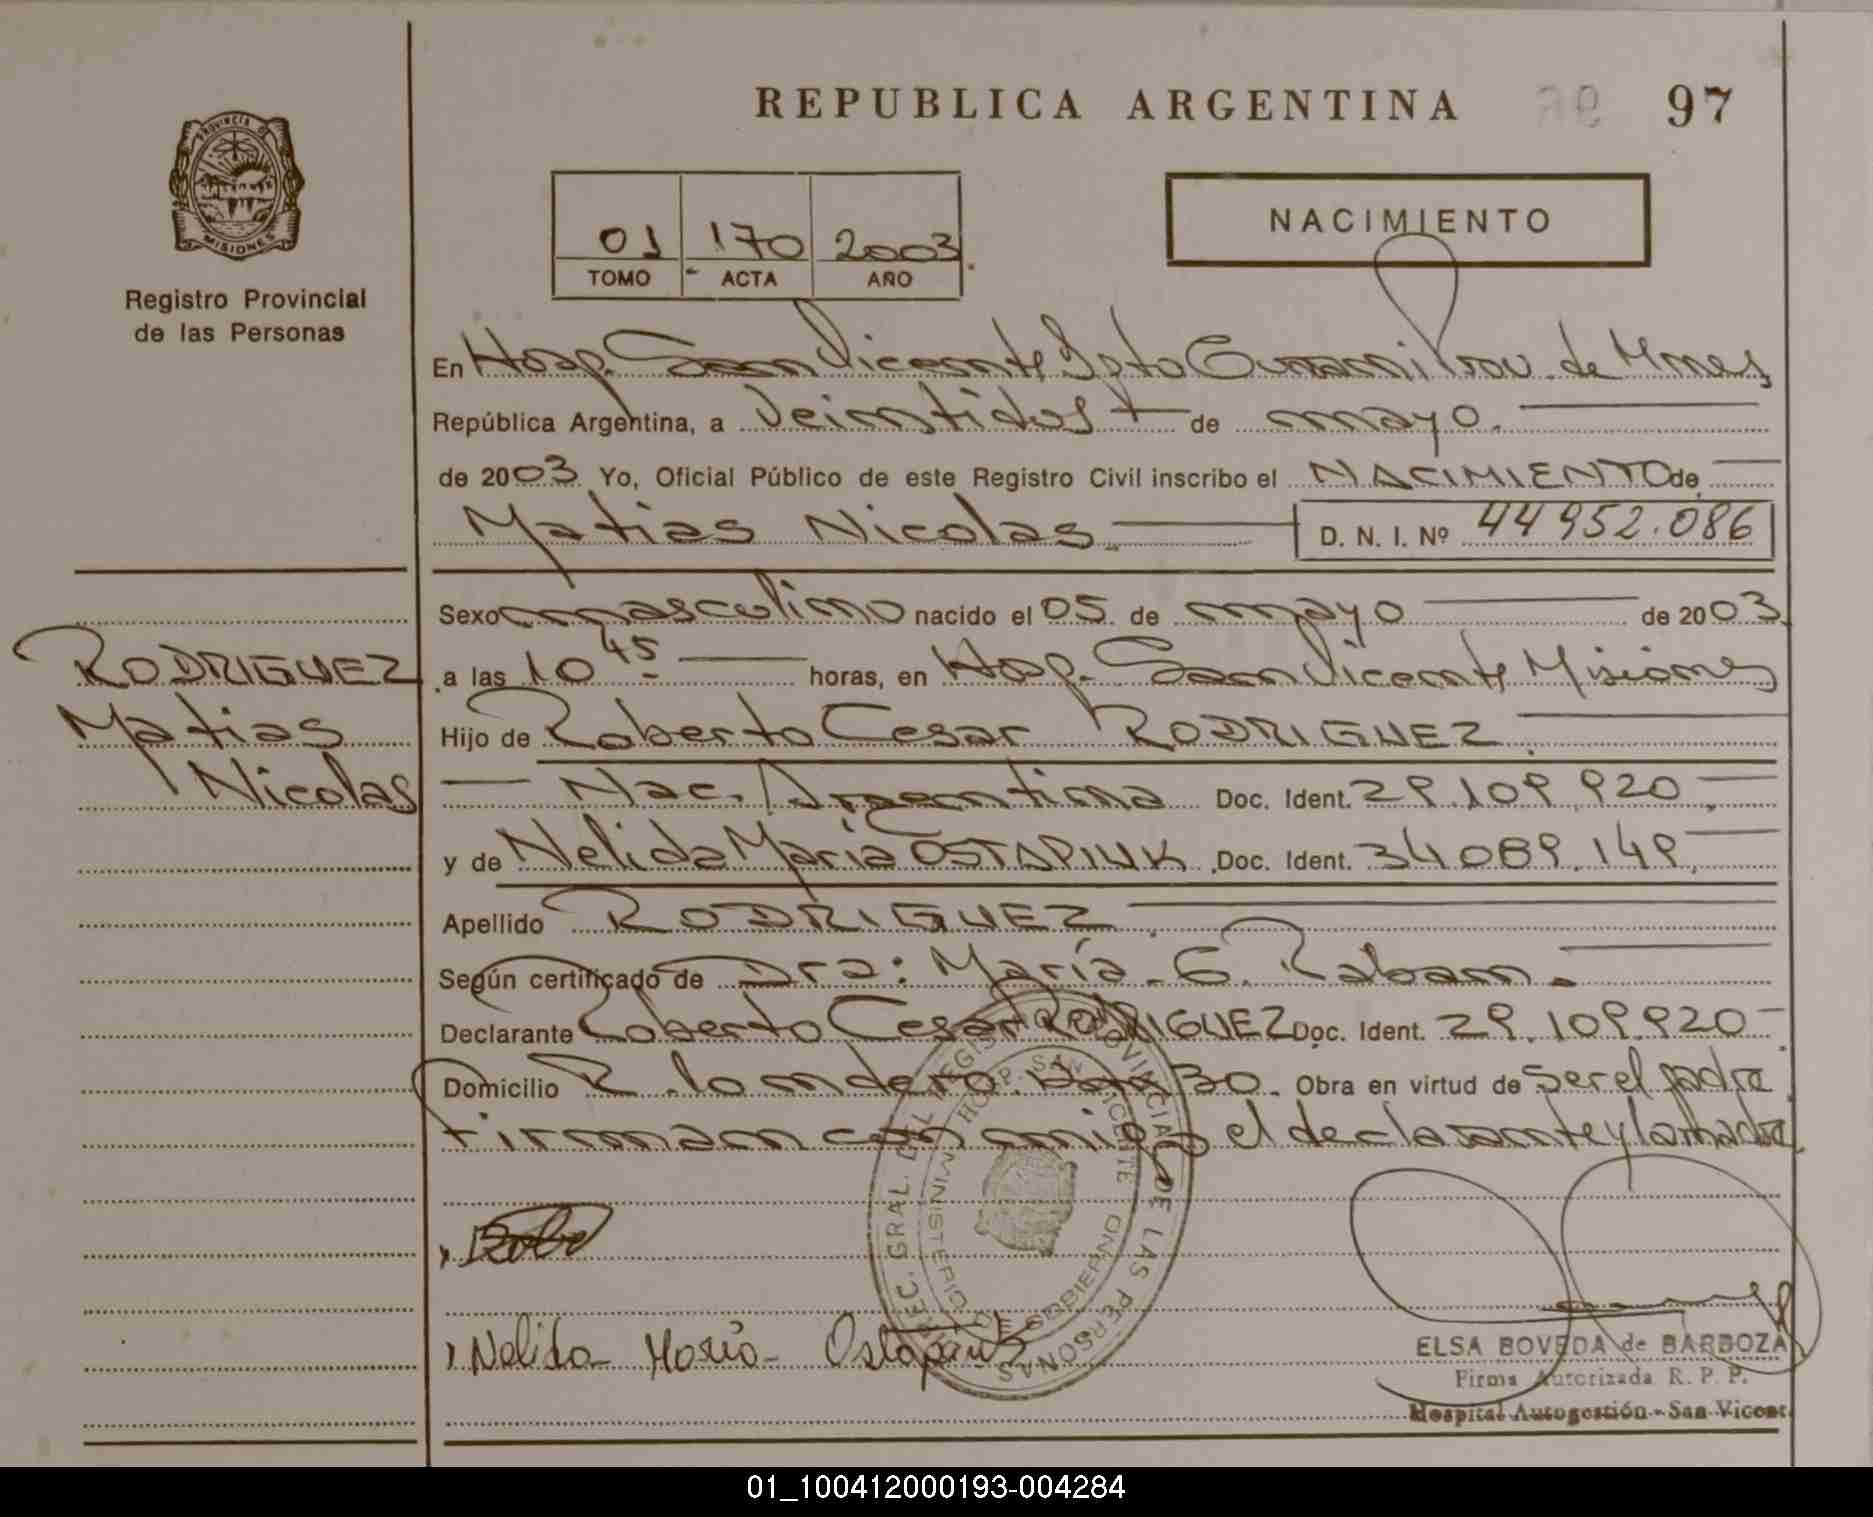 REPUBLICA ARGENTINA 97
PROVINCIA DE
MISIONES
Registro Provincial
de las Personas
01 170 2003
TOMO ACTA AÑO
NACIMIENTO
En Hosp. San Vicente Dpto Guaraní Prov. de Mnes,
República Argentina, a Veintidos de mayo.
de 2003 Yo, Oficial Público de este Registro Civil inscribo el NACIMIENTO de
Matias Nicolas D. N. I. Nº 44952.086
Sexo masculino nacido el 05 de mayo de 2003
RODRIGUEZ
Matias
Nicolas
a las 10 45 horas, en Hosp. San Vicente Misiones
Hijo de Roberto Cesar RODRIGUEZ.
Nac. Argentina Doc. Ident. 29.109.920.
y de Nelida Maria OSTAPIUK Doc. Ident. 34.089.149.
Apellido RODRIGUEZ.
Según certificado de Dra: María E. Raban.
Declarante Roberto Cesar RODRIGUEZ Doc. Ident. 29.109.920
Domicilio 30. Obra en virtud de Ser el padre
Firman con migo el declarante y la madre
DIREC. GRAL. DEL REGISTRO PROVINCIAL DE LAS PERSONAS
HOSP. SAN VICENTE
MINISTERIO DE GOBIERNO
Nelida Maria Ostapiuk
ELSA BOVEDA de BARBOZA
Firma Autorizada R. P. P.
Hospital Autogestión - San Vicent
01_100412000193-004284